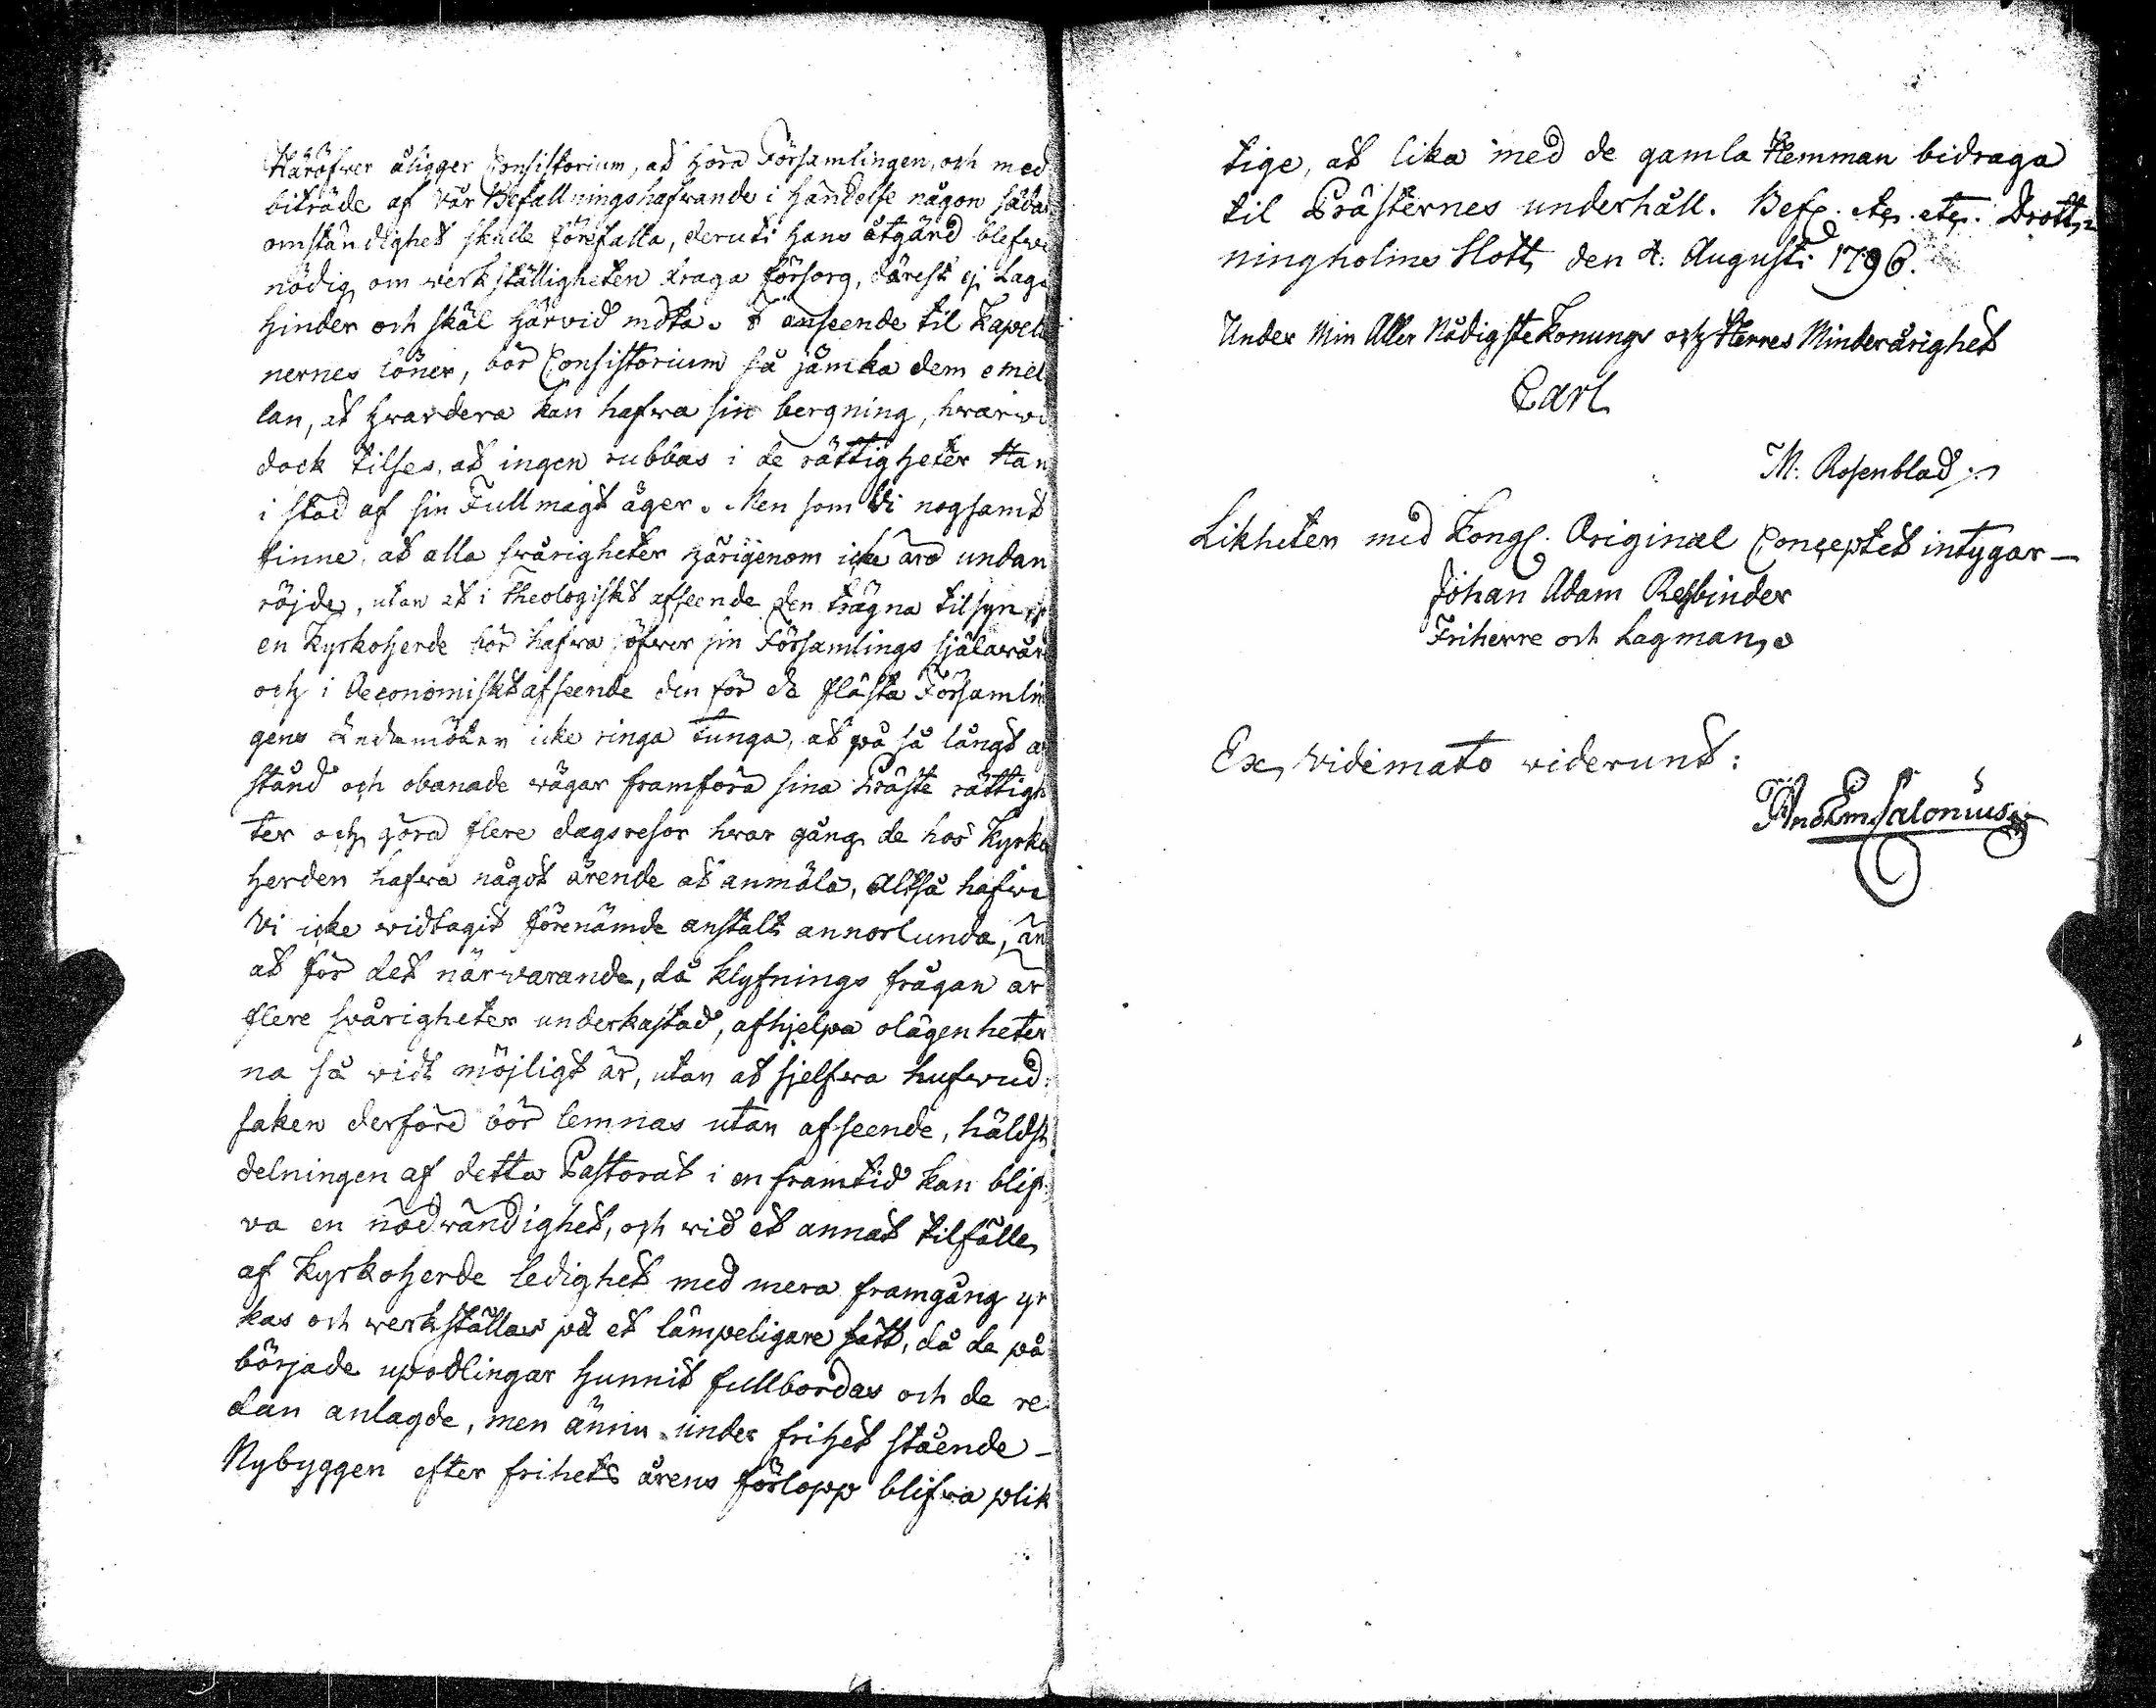 Häröfwer åligger Consistorium, at höra Församlingen, och med
biträde af Vår Befallningshafwande i händelse någon sådan
omständighet skulle förefalla, deruti hans åtgärd blefwe
nödig, om werkställigheten draga försorg, därest ej Laga
hinder och skäl härvid möta. I anseende til Kapela
nernes löner, bör Consistorium så jämka dem emel
lan, at hvardera kan hafwa sin bergning, hvarwid
dock tilses, at ingen rubbas i de rättigheter Han
i stöd af sin Fullmagt äger. Men som Vi nogsamt
finne, at alla swårigheter härigenom icke äro undan
röjde, utan at i Theologiskt afseende den trägna tilsyn
en Kyrkoherde bör hafwa öfwer sin Församlings själawård
och i Oeconomiskt afseende den för de flästa Församlin
gens Ledamöter icke ringa tunga, at på så långt af
stånd och obanade wägar framföra sina Präste rättighe
ter och göra flere dagsresor hwar gång de hos Kyrko
herden hafwa något ärende at anmäla, altså hafwe
Vi icke widtagit förenämde anstalt annorlunda, än
at för det närwarande, då klyfnings frågan är
flere swårigheter underkastad, afhjelpa olägenheter
na så widt möjligt är, utan at sjelfwa hufwud:
saken derföre bör lemnas utan afseende, häldst
delningen af detta Pastorat i en framtid kan blif:
va en nödwändighet, och wid et annat tilfälle
af Kyrkoherde ledighet med mera framgång yr
kas och werkställas på et lämpeligare sätt, då de på
började upodlingar hunnit fullbordas och de re:
dan anlagde, men ännu under frihet stående –
Nybyggen efter frihets årens förlopp blifwa plik
tige, at lika med de gamla Hemman bidraga
til Prästernes underhåll. Bef. etc. etc. Drott
ningholms Slott den 4. Augusti 1796.
Under Min Aller Nådigste Konungs och Herres Minderårighet
Carl
M: Rosenblad
Likheten med Kongl. Original Conceptet intygar –
Johan Adam Rehbinder
Friherre och Lagman
Ex Vidimato viderunt:
And Em Salonius